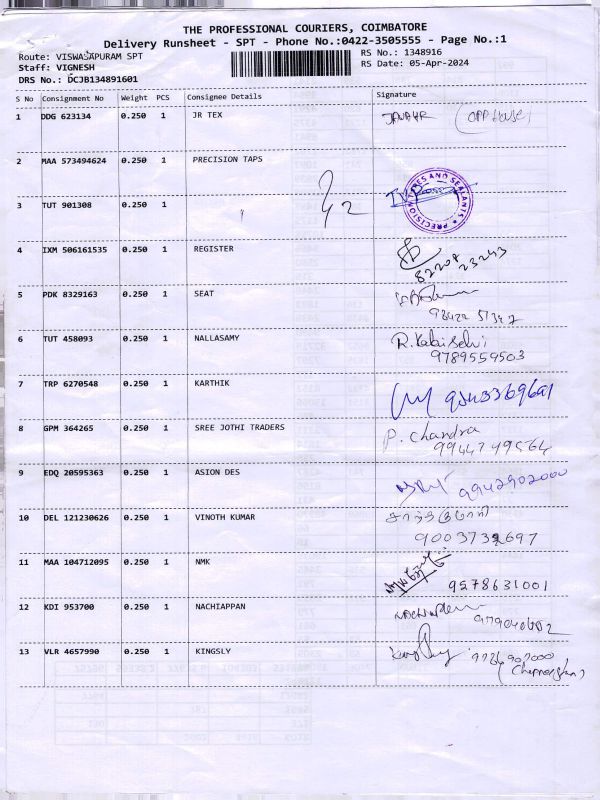 THE PROFESSIONAL COURIERS, COIMBATORE
Delivery Runsheet - SPT - Phone No.:0422-3505555 - Page No.:1
Route: VISWASAPURAM SPT
Staff: VIGNESH
DRS No.: DCJB134891601
RS No.: 1348916
RS Date: 05-Apr-2024
S No Consignment No Weight PCS Consignee Details Signature
1 DDG 623134 0.250 1 JR TEX (OPP HOUSE)
2 MAA 573494624 0.250 1 PRECISION TAPS
PRECISION TAPES AND SEALANTS
3 TUT 901308 0.250 1
4 IXM 506161535 0.250 1 REGISTER
82208 23243
5 PDK 8329163 0.250 1 SEAT
98422 51342
6 TUT 458093 0.250 1 NALLASAMY R. Kalaiselvi
9789559503
7 TRP 6270548 0.250 1 KARTHIK
8 GPM 364265 0.250 1 SREE JOTHI TRADERS P. Chandra
9944749564
9 EDQ 20595363 0.250 1 ASION DES 9942902000
10 DEL 121230626 0.250 1 VINOTH KUMAR
11 MAA 104712095 0.250 1 NMK 9578631001
12 KDI 953700 0.250 1 NACHIAPPAN
13 VLR 4657990 0.250 1 KINGSLY